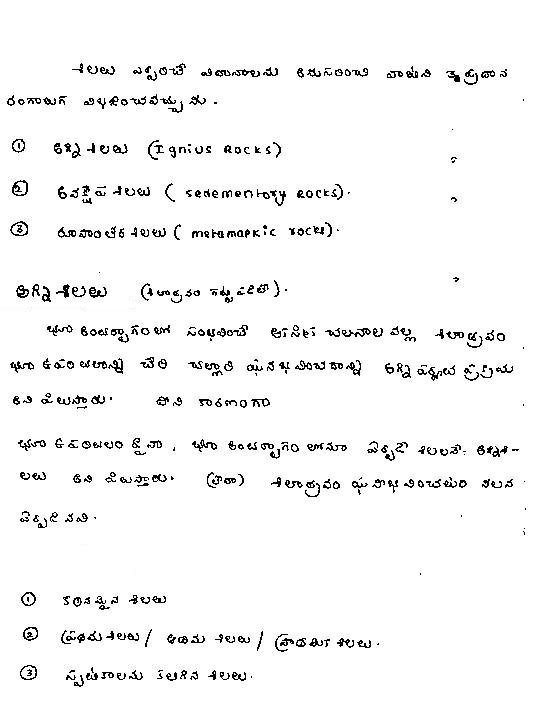 శిలలు ఏర్పడిచే విధానాలను అనుసరించి వాటిని త్ర ప్రధాన
రంగాలుగ విభజించవచ్చును.
① అగ్ని శిలలు (Ignius Rocks)
② అవక్షేప శిలలు ( sedementory Rocks).
③ రూపాంతర శిలలు ( metamarkic rocks).
అగ్ని శిలలు (శిలాద్రవం గట్టి పడితే).
భూ అంతర్భాగం లో సంభవించే చలనాల వల్ల శిలాద్రవం
భూ ఉపరితలాన్ని చేరి చల్లారి ఘనీభవించడాన్ని అగ్ని పర్వత ప్రక్రియ
అని పిలుస్తారు. దీని కారణంగా
భూ ఉపరితలం పైనా, భూ అంతర్భాగం లోనూ ఏర్పడే శిలలనే అగ్నిశి-
లలు అని పిలుస్తారు. (లేదా) శిలాద్రవం ఘనీభవించుట వలన
ఏర్పడినవి.
① కఠినమైన శిలలు
② ప్రథమ శిలలు / ఆదిమ శిలలు / ప్రాథమిక శిలలు.
③ స్పటికాలను కలిగిన శిలలు.